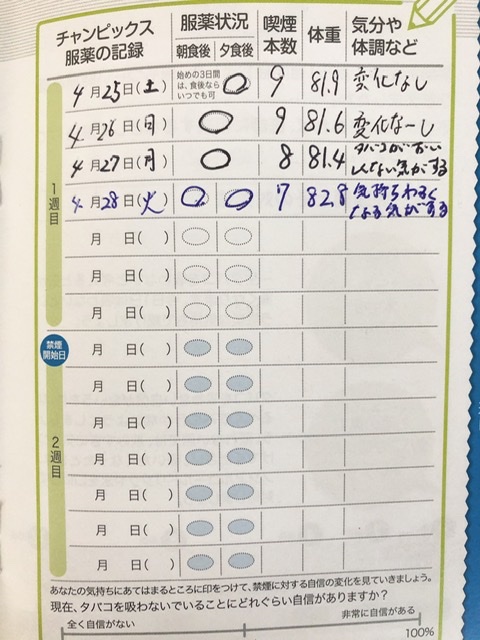 チャンピックス
服薬の記録
服薬状況
朝食後 夕食後
喫煙
本数
体重
気分や
体調など
4月25日(土) 始めの3日間は、食後ならいつでも可 9 81.9 変化なし
4月26日(日) 9 81.6 変化なーし
4月27日(月) 8 81.4 タバコがおいしくない気がする
4月28日(火) 7 82.8 気持ちわるくなる気がする
月 日( )
月 日( )
月 日( )
1週目
禁煙
開始日
月 日( )
月 日( )
月 日( )
月 日( )
月 日( )
月 日( )
月 日( )
2週目
あなたの気持ちにあてはまるところに印をつけて、禁煙に対する自信の変化を見ていきましょう。
現在、タバコを吸わないでいることにどれぐらい自信がありますか?
全く自信がない 非常に自信がある
100%